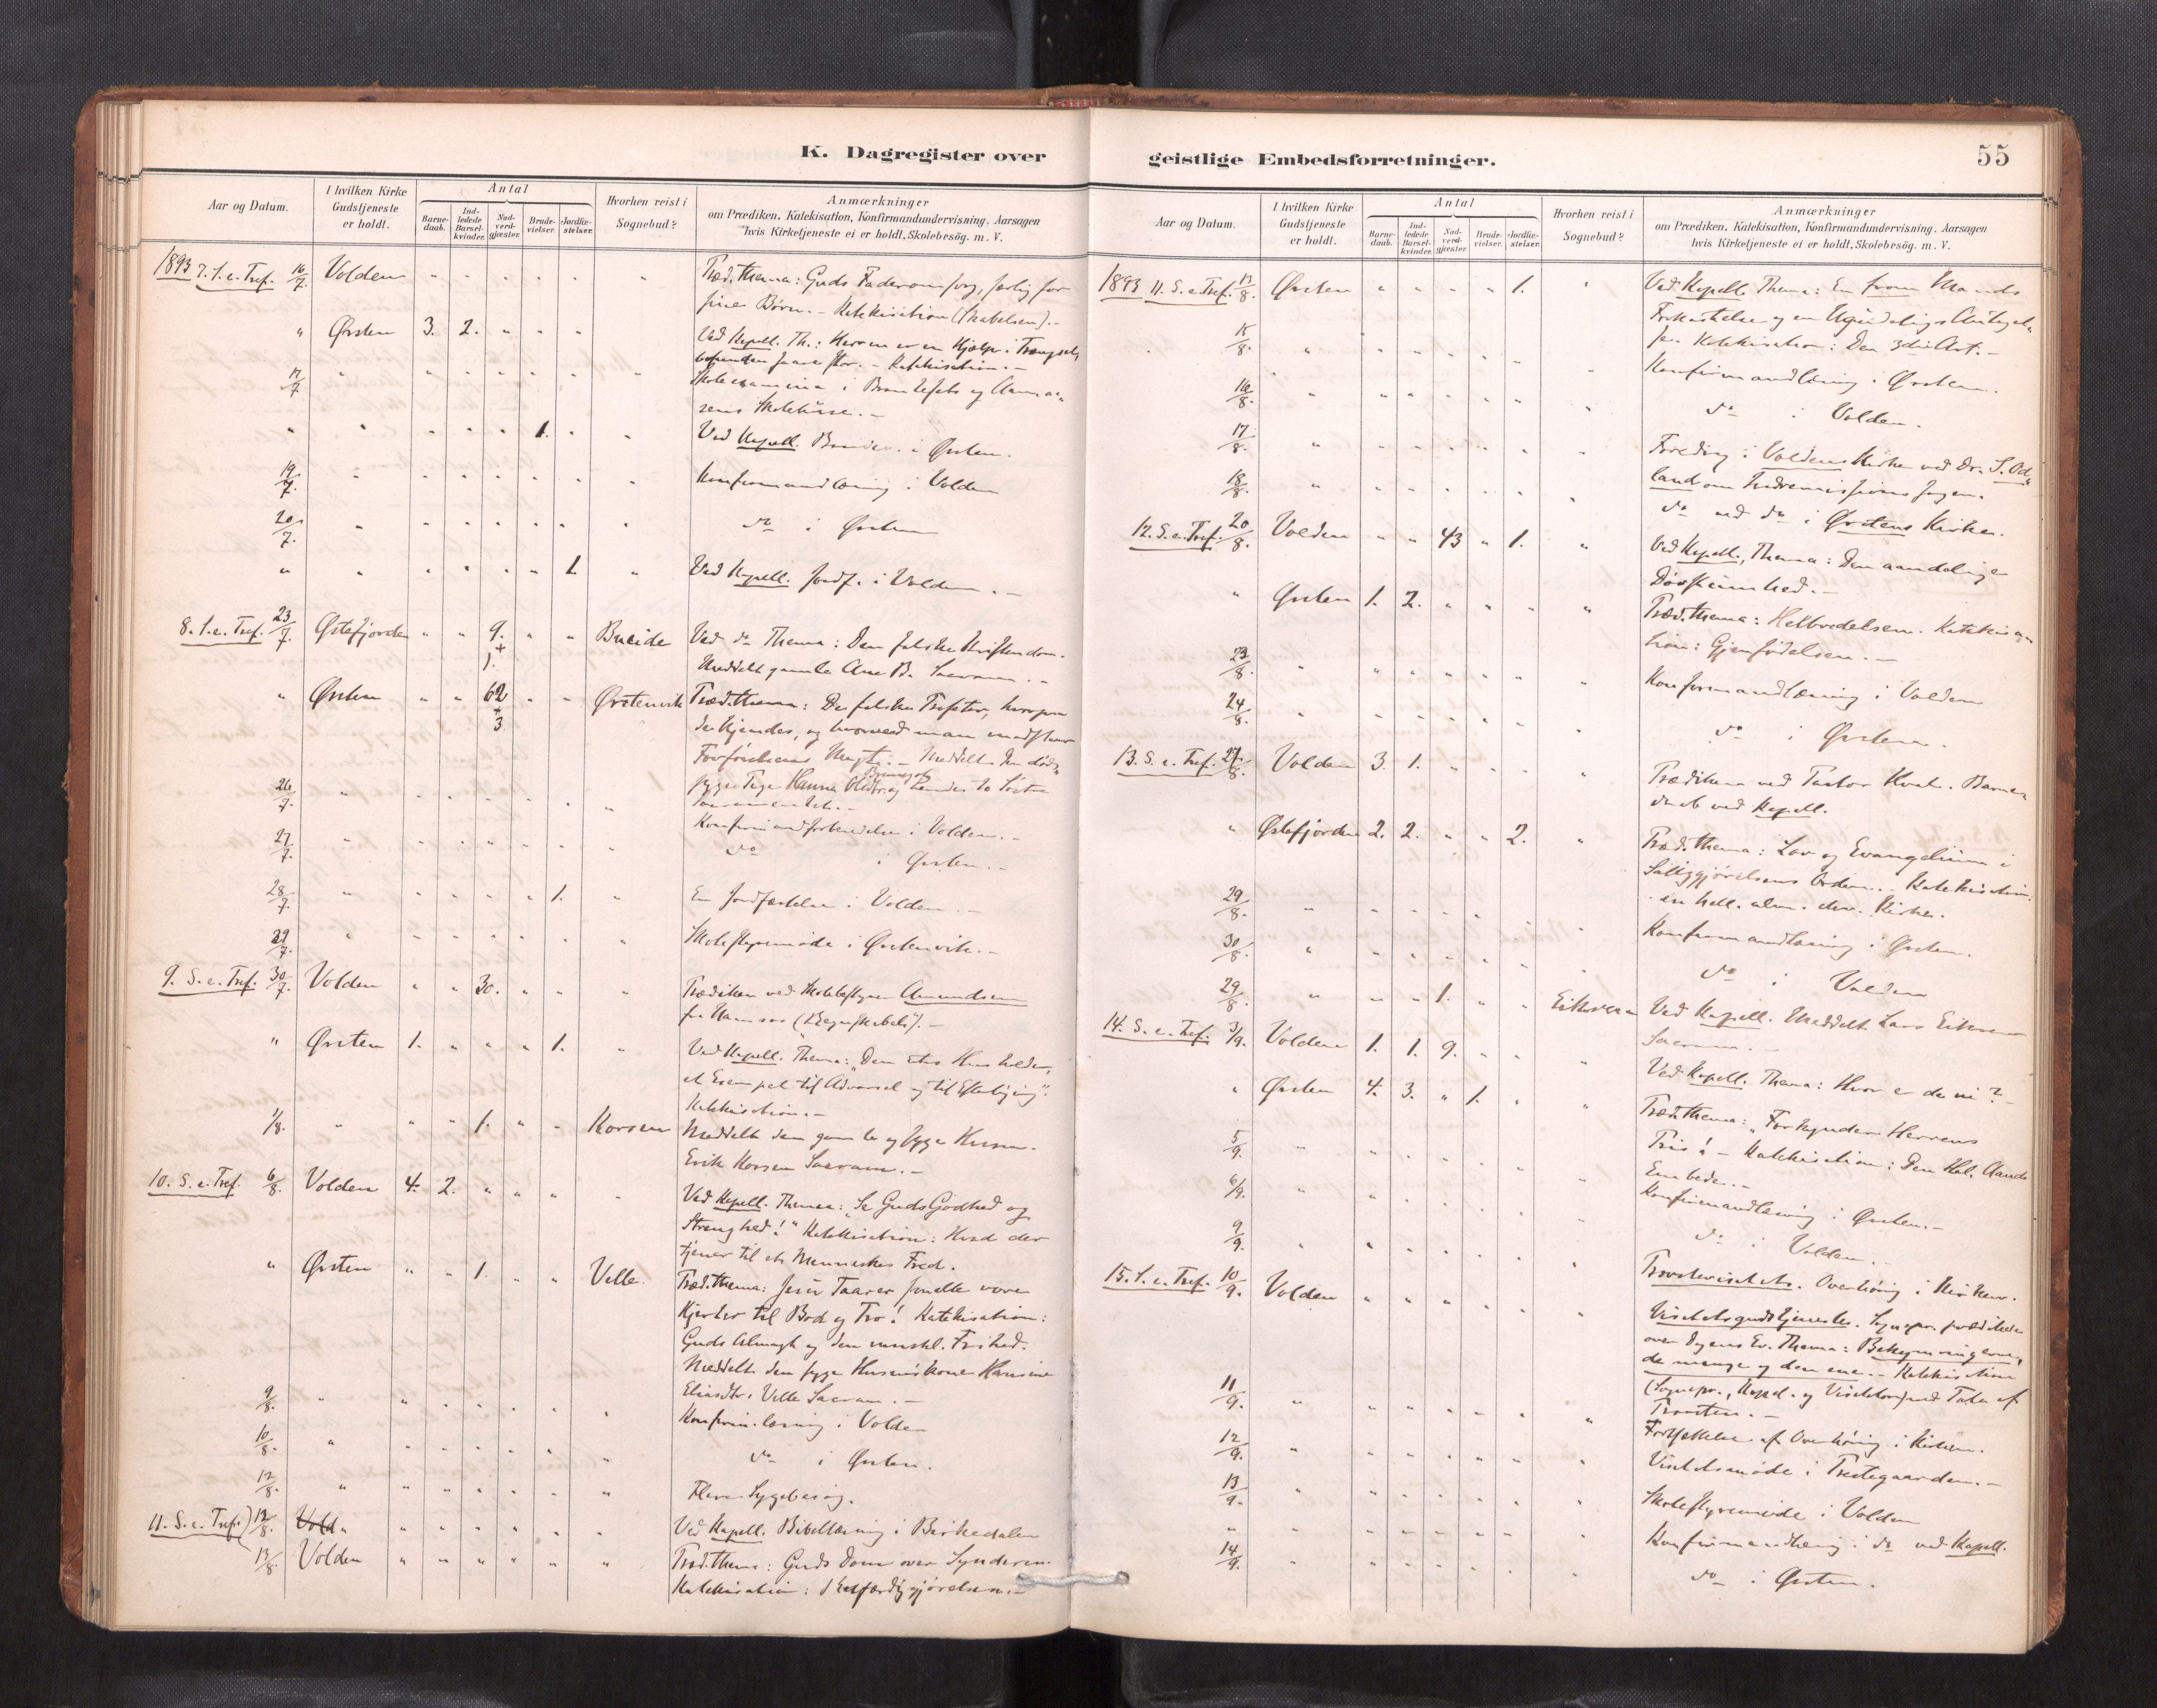 K. Dagregister over
Aar og Datum.
I hvilken Kirke Gudstjeneste er holdt.
Antal
Barne-daab.
Ind-ledede Barsel-kvinder.
Nad-verd-gjæster.
Brude-vielser.
Jordfæ-stelser.
Hvorhen reist i Sognebud?
Anmærkninger
om Prædiken, Katekisation, Konfirmandundervisning, Aarsagen
hvis Kirketjeneste ei er holdt, Skolebesög. m. V.
1893 7. S. e. Tref. 16/7. Volden " " " " " " Præd. thema: Guds Faderomsorg, særlig for
sine Børn. - Katekisation (Skabelsen). -
" Ørsten 3. 2. " " " Ved Kapell. Th.: Herren er en Hjælper i Trængsel,
befunden saare stor. - Katekisation. -
17/7 " " " " " " Skoleexamina i
Skolekredse. -
" " " " " 1. " " Ved Kapell. i Ørsten.
19/7. " " " " " " " Konfirmandlæsning i Volden
20/7. " " " " " " " do i Ørsten
" " " " " " 1 " Ved Kapell. Jordf. i Volden. -
8. S. e. Tref. 23/7. Østefjorden " " 9. + 1. " " Bueide Ved do Thema: Den falske Kristendom.
Meddelt gamle Ane B. Sacram. -
" Ørsten " " 62 + 3 " " Ørstenvik Præd. thema: De falske Profeter, hvorpaa
de kjendes, og hvorved man modstaar
Forførelsens Magt. - Meddelt den døds-
syge Pige Hanna Oldtr. og hendes to Søstre
Sacramentet. -
26/7. " " " " " " " Konfirmandforberedelse i Volden. -
27/7. " " " " " " " do i Ørsten. -
28/7. " " " " " 1. " En Jordfæstelse i Volden. -
29/7. " " Skolestyremøde i Ørstenvik. -
9. S. e. Tref. 30/7. Volden " " 30. " " " Prædiken ved Skolebestyrer Amundsen
fra Namsos (Regnskabet). -
" Ørsten 1. " " " 1. " Ved Kapell. Thema: "Den utro Husholder,
et Exempel til Advarsel og til Efterligning".
Katekisation. -
1/8. " " " 1. " " Korsen Meddelt den gamle og syge Husm.
Erik Korsen Sacram. -
10. S. e. Tref. 6/8. Volden 4. 2. " " " " Ved Kapell. Thema: "Se Guds Godhed og
Strenghed!" Katekisation: Hvad der
tjener til et Menneskes Fred.
" Ørsten " " 1. " " Velle. Præd. thema: Jesu Taarer smelte vore
Hjerter til Bod og Tro! Katekisation:
Guds Almagt og den menskl. Frihed.
Meddelt den syge Husmandskone Hansine
Eliasdtr. Velle Sacram. -
9/8. " " " " " " " Konfirm.læsning i Volden
10/8. " " " " " " " do i Ørsten.
12/8. " " " " " " " Flere Sygebesøg.
11. S. e. Tref.) 12/8. Vold " " " " " " Ved Kapell. Bibellæsning i Birkedalen
13/8. Volden " " " " " " Præd. thema: Guds Dom over Synderen.
Katekisation: Retfærdiggjørelsen. -
geistlige Embedsforretninger.
55
Aar og Datum.
I hvilken Kirke Gudstjeneste er holdt.
Antal
Barne-daab.
Ind-ledede Barsel-kvinder.
Nad-verd-gjæster.
Brude-vielser.
Jordfæ-stelser.
Hvorhen reist i Sognebud?
Anmærkninger
om Prædiken, Katekisation, Konfirmandundervisning, Aarsagen
hvis Kirketjeneste ei er holdt, Skolebesög. m. V.
1893 11. S. e. Tref. 13/8. Ørsten " " " " 1. " Ved Kapell. Thema: En from Mands
Forkastelse og en Ugudeligs Antagel-
se. Katekisation: Den 3die Art. -
15/8. " " " " " " " Konfirmandlæsning i Ørsten.
16/8. " " " " " " " do i Volden.
17/8. " " " " " " " Foredrag i Voldens Kirke ved Dr. S. Od-
land om Indremissionssagen.
18/8. " " " " " " " do ved do i Ørstens Kirke.
12. S. e. Tref. 20/8. Volden " " 43 " 1. " Ved Kapell., Thema: Den aandelige
Døvstumhed. -
" Ørsten 1. 2. " " " " Præd. thema: Helbredelsen. Katekisa-
tion: Gjenfødelsen. -
23/8. " " " " " " " Konfirmandlæsning i Volden
24/8. " " " " " " " do i Ørsten.
13. S. e. Tref. 27/8. Volden 3. 1. " " " " Prædiken ved Pastor . Barne-
daab ved Kapell.
" Østefjorden 2. 2. " " 2. " Præd. thema: Lov og Evangelium i
Saliggjørelsens Orden. - Katekisation
en hell. alm. Kirke.
29/8. " " " " " " " Konfirmandlæsning i Ørsten.
30/8. " " " " " " " do i Volden
29/8. " " " 1. " " Eikrem Ved Kapell. Meddelt Lars Eikrem
Sacram. -
14. S. e. Tref. 3/9. Volden 1. 1. 9. " " " Ved Kapell. Thema: Hvor er de ni? -
" Ørsten 4. 3. " 1. " " Præd. thema: "Forkynder Herrens
Pris! - Katekisation: Den Hel. Aands
Embede. -
5/9. " " " " " " " Konfirmandlæsning i Ørsten. -
6/9. " " " " " " " do i Volden. -
9/9. " " " " " " " Provstevisitats. Overhøring i Kirken.
15. S. e. Tref. 10/9. Volden " " " " " " Visitatsgudstjeneste. Sognepr. prædikede
over Dagens Ev. Thema: Bekymringerne,
de mange og den ene. - Katekisation
(Sognepr., Kapel. og Visitator) med Tale af
Provsten. -
11/9. " " " " " " " Fortsættelse af Overhøring i Kirken.
12/9. " " " " " " " Visitatsmøde i Præstegaarden. -
13/9. " " " " " " " Skolestyremøde i Volden
" " " " " " " " Konfirmandlæsning i do ved Kapell.
14/9. " " " " " " do i Ørsten.